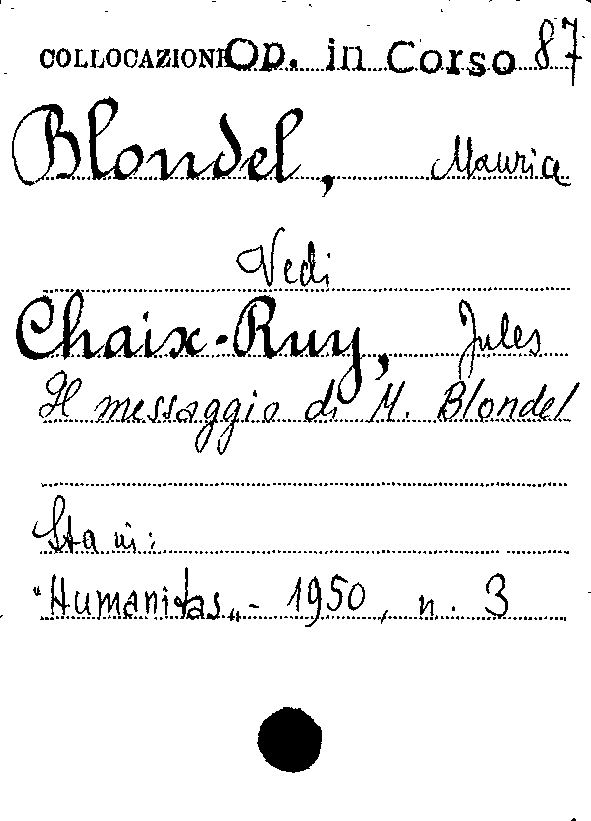 COLLOCAZIONE Op. in Corso 87
Blondel, Maurice
Vedi
Chaix-Ruy, Jules
Il messaggio di M. Blondel
Sta in:
"Humanitas" - 1950, n. 3